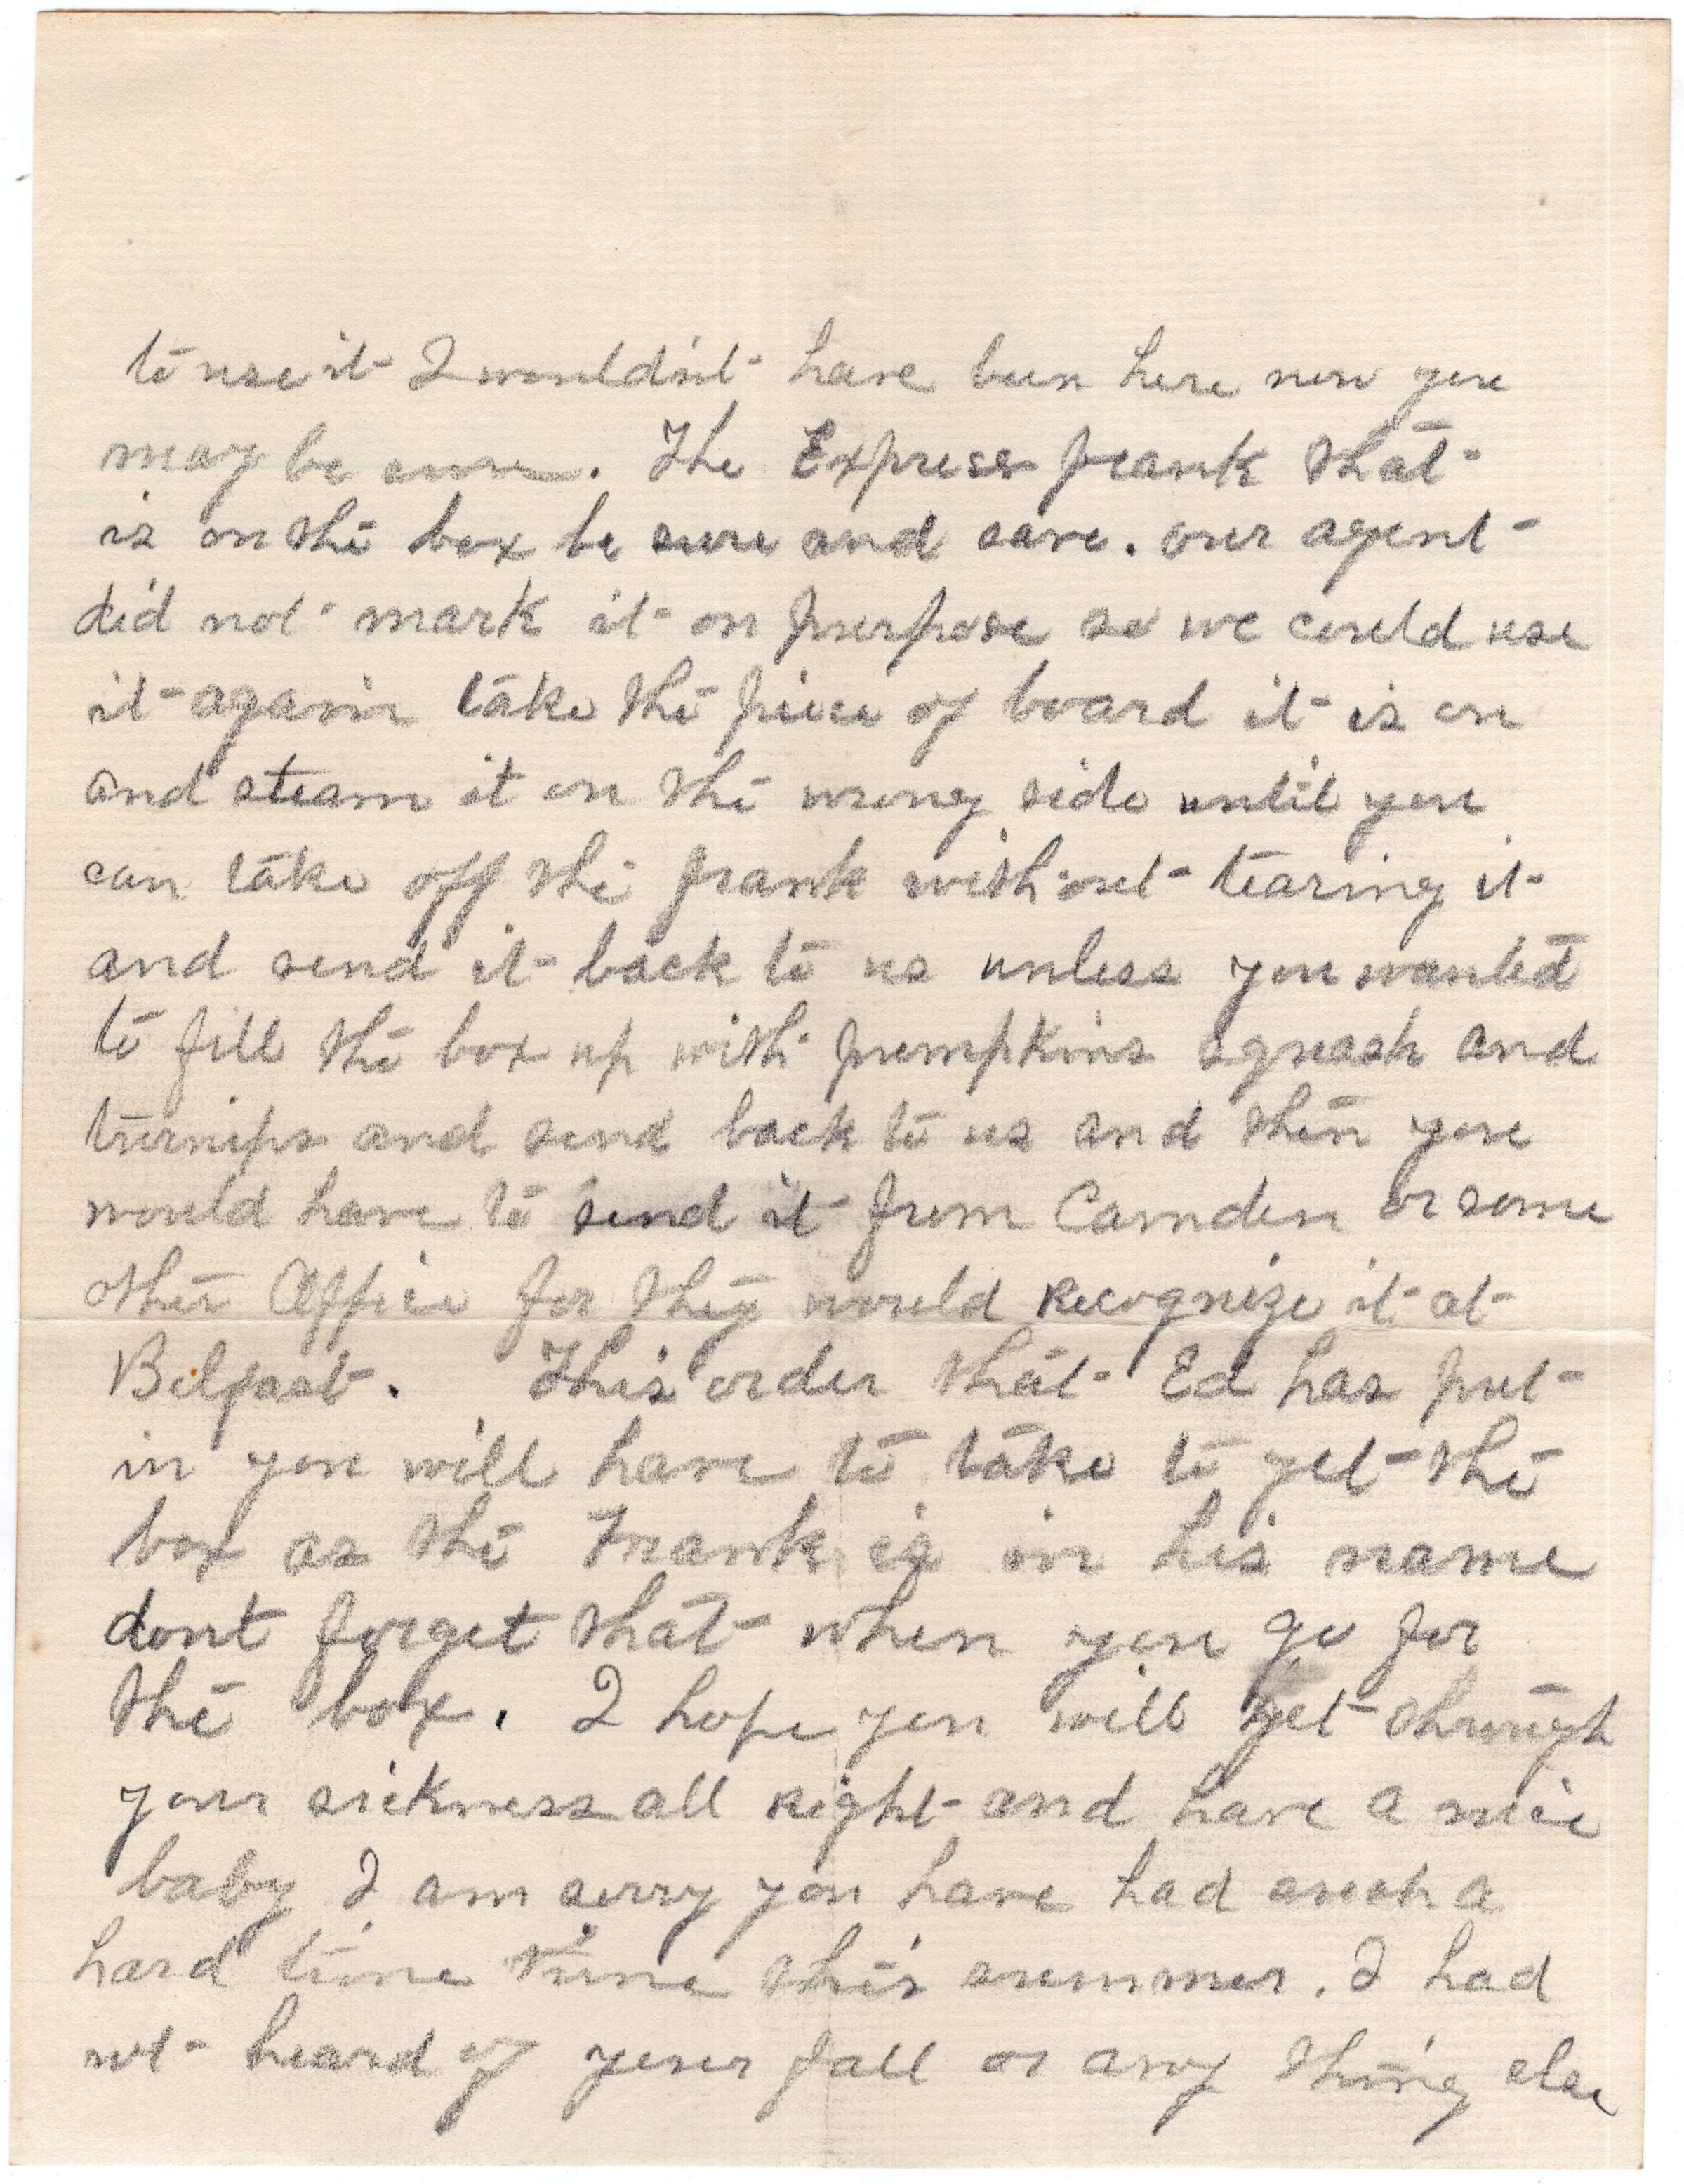 to use it I wouldn't have been here now you
may be sure. The Express frank that
is on the box be sure and save. our agent
did not mark it on purpose so we could use
it again take the piece of board it is on
and steam it on the wrong side until you
can take off the frank with out tearing it
and send it back to us unless you wanted
to fill the box up with pumpkins squash and
turnips and send back to us and then you
would have to send it from Camden or some
other Office for they would recognize it at
Belfast. This order that Ed has put
in you will have to take to get the
box as the Frank is in his name
dont forget that when you go for
the box. I hope you will get through
your sickness all right and have a nice
baby I am sorry you have had such a
hard time this summer. I had
not heard of your fall or any thing else